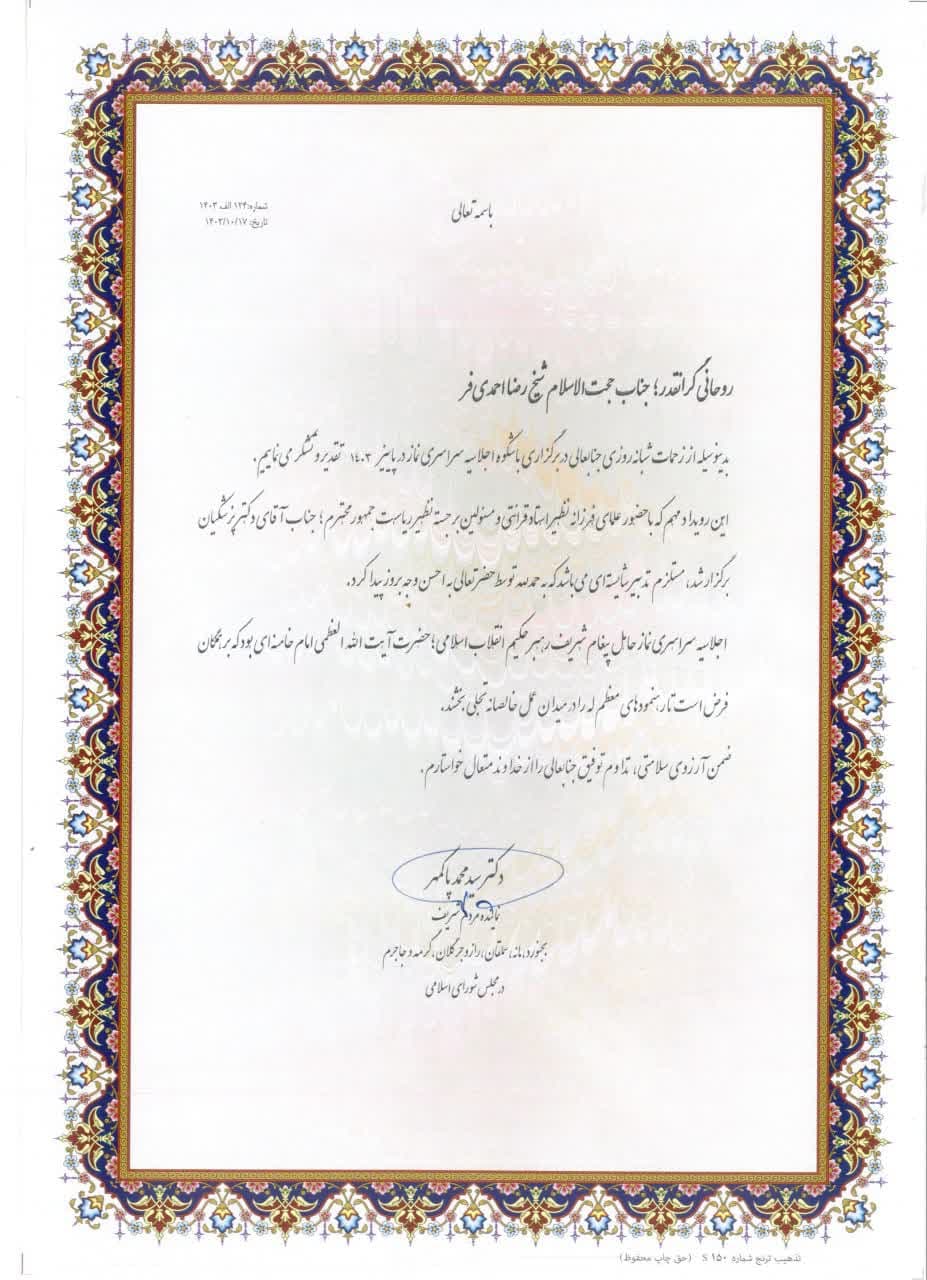 باسمه تعالی
شماره: ۱۲۴ الف ۱۴۰۳
تاریخ: ۱۴۰۳/۱۰/۱۷
روحانی گرانقدر؛ جناب حجت الاسلام شیخ رضا احمدی فر
بدینوسیله از زحمات شبانه روزی جنابعالی در برگزاری باشکوه اجلاسیه سراسری نماز در پاییز ۱۴۰۳ تقدیر و تشکر می نماییم.
این رویداد مهم که با حضور علمای فرزانه نظیر استاد قرائتی و مسئولین برجسته نظیر ریاست جمهور محترم؛ جناب آقای دکتر پزشکیان
برگزار شد، مستلزم تدبیر شایسته ای می باشد که بحمدالله توسط حضرتعالی به احسن وجه بروز پیدا کرد.
اجلاسیه سراسری نماز حامل پیغام شریف رهبر حکیم انقلاب اسلامی؛ حضرت آیت الله العظمی امام خامنه ای بود که بر همگان
فرض است تا رهنمودهای معظم له را در میدان عمل خالصانه تجلی بخشند.
ضمن آرزوی سلامتی، تداوم توفیق جنابعالی را از خداوند متعال خواستارم.
دکتر سید محمد پاکمهر
نماینده مردم شریف
بجنورد، مانه، سملقان، راز و جرگلان، گرمه و جاجرم
در مجلس شورای اسلامی
تذهیب ترنج شماره S ۱۵۰ (حق چاپ محفوظ)